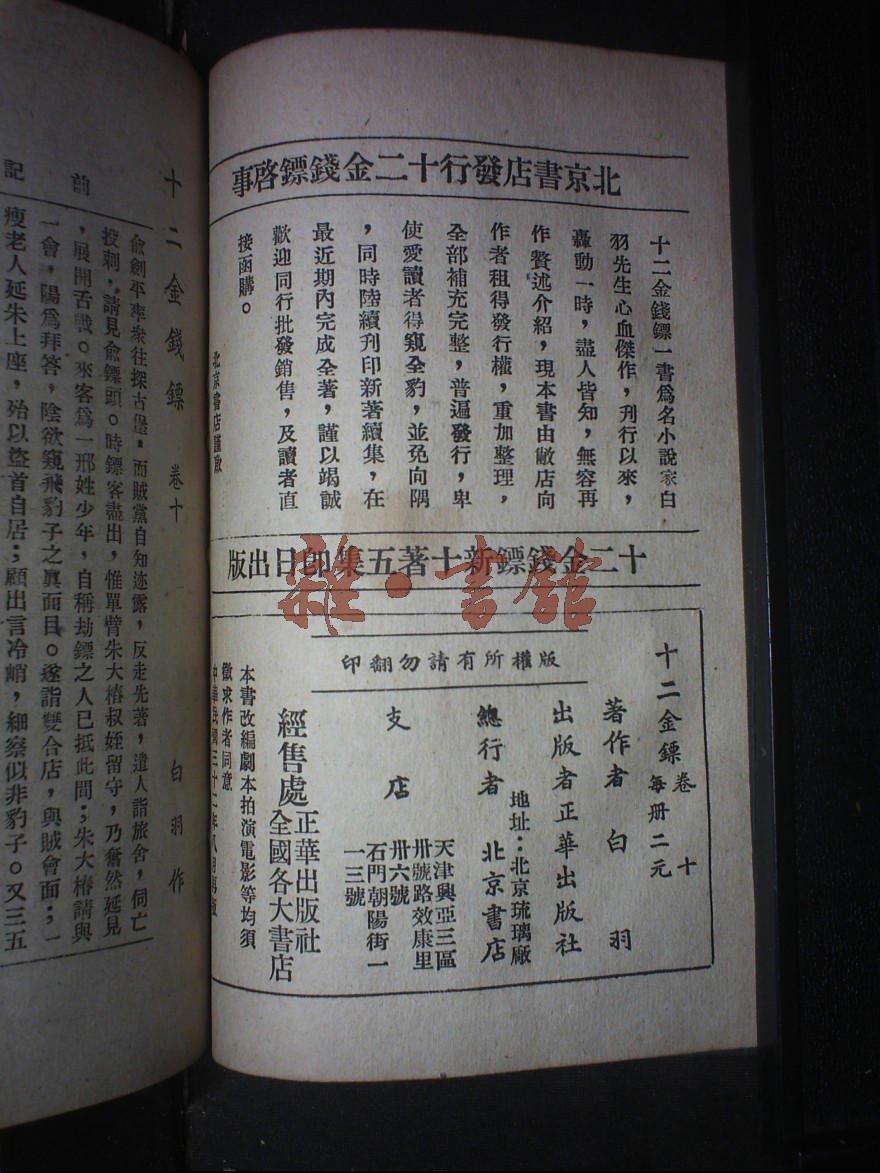 北京書店發行十二金錢鏢啓事
十二金錢鏢一書爲名小說家白
羽先生心血傑作，刊行以來，
轟動一時，盡人皆知，無容再
作贅述介紹，現本書由敝店向
作者租得發行權，重加整理，
全部補充完整，普遍發行，卑
使愛讀者得窺全豹，並免向隅
，同時陸續刊印新著續集，在
最近期內完成全著，謹以竭誠
歡迎同行批發銷售，及讀者直
接函購。
北京書店謹啟
十二金錢鏢新十著五集即日出版
十二金鏢卷十
每册二元
版權所有請勿翻印
著作者 白羽
出版者正華出版社
地址：北京琉璃廠
總行者 北京書店
支店
天津興亞三區
卅號路效康里
卅六號
石門朝陽街一
一三號
經售處
正華出版社
全國各大書店
本書改編劇本拍演電影等均須
徵求作者同意
中華民國三十二年八月再版
十二金錢鏢 卷十 一 白羽作
前記
俞劍平率衆往探古堡，而賊黨自知迹露，反走先著，遣人詣旅舍，伺亡
投刺，請見俞鏢頭。時鏢客盡出，惟單臂朱大椿叔姪留守，乃奮然延見
，展開舌戰。來客爲一邢姓少年，自稱劫鏢之人已抵此間；朱大椿請與
一會，陽爲拜答，陰欲窺飛豹子之眞面目。遂詣雙合店，與賊會面；一
瘦老人延朱上座，殆以盜首自居；顧出言冷峭，細察似非豹子。又三五
雜·書館